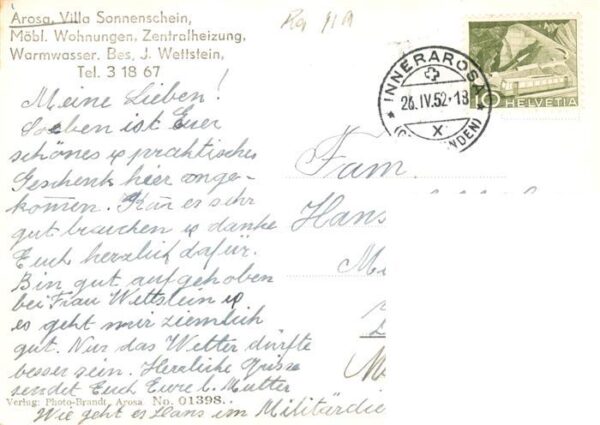 Arosa, Villa Sonnenschein,
Möbl. Wohnungen, Zentralheizung,
Warmwasser. Bes. J. Wettstein,
Tel. 3 18 67
INNERAROSA
26.IV.52-18
X
10 HELVETIA
Meine Lieben!
Soeben ist Euer
schönes u praktisches
Geschenk hier ange-
kommen. Kan es sehr
gut brauchen u danke
Euch herzlich dafür.
Bin gut aufgehoben
bei Frau Wettstein u
es geht mir ziemlich
gut. Nur das Wetter dürfte
besser sein. Herzliche Grüsse
sendet Euch Eure l. Mutter
Wie geht es Hans im Militärdie
Verlag: Photo-Brandt, Arosa No. 01398.
Fam.
Hans